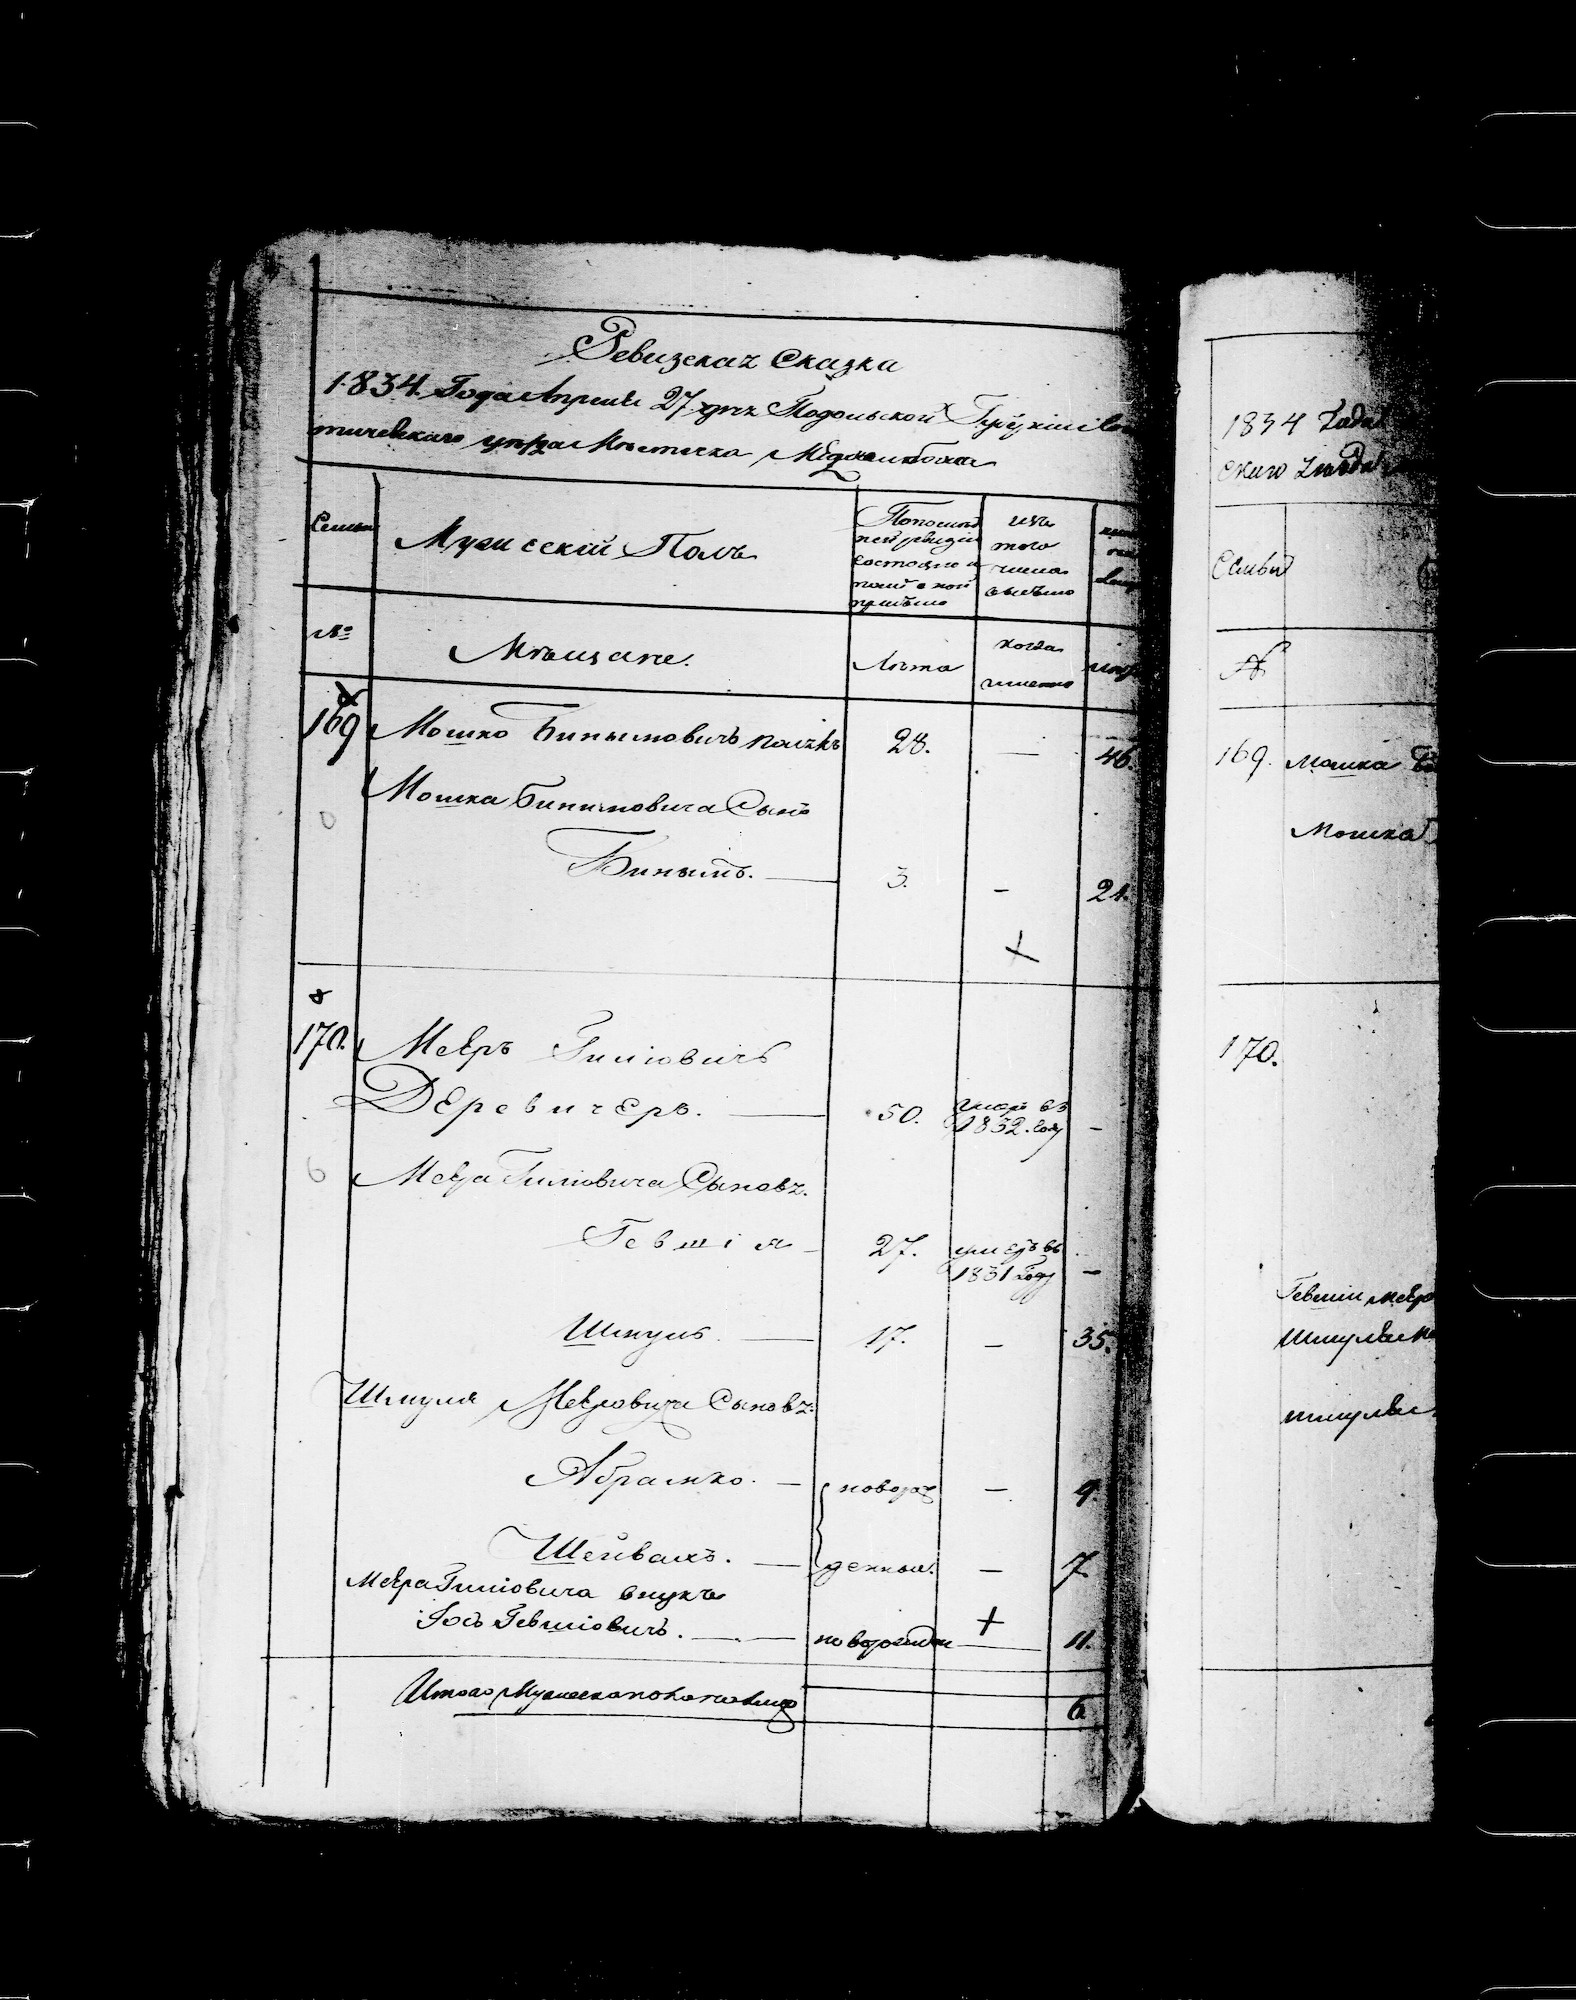 Ревизская Сказка
1834. Года Апреля 27 дня Подольской Губернии Ле
тичевского уезда Местечка Меджибожа
Семьи
Мужескій Полъ
По последней ревизіи состояло и после оной прибыло
изъ того числа выбыло
№
Мѣщане.
Лѣта
когда именно
169
Мошко Бинымовичъ
28.
—
46.
Мошка Бинимовича Сынъ
Бинымъ. —
3.
-
21.
170.
Меэръ Гишовичъ
Деревичеръ. —
50.
умеръ въ 1832. году
-
Меера Гишовича Сыновя.
Гевшія -
27.
умеръ въ 1831 году
-
Шмуль. —
17.
-
35.
Шмуля Меэровича Сыновя:
Абрамко. -
новорож
-
9.
Шейвахъ. —
денныя.
-
7.
Меера Гишовича внукъ
Іось Гевшіовичъ. —
новорожден
11.
Итого Мужеска пола на лицо
6.
1834 Года
ского уезда
Семьи
№
169.
Мошка
Мошка
170.
Гевшіи Меэро
Шмуля
шмуля